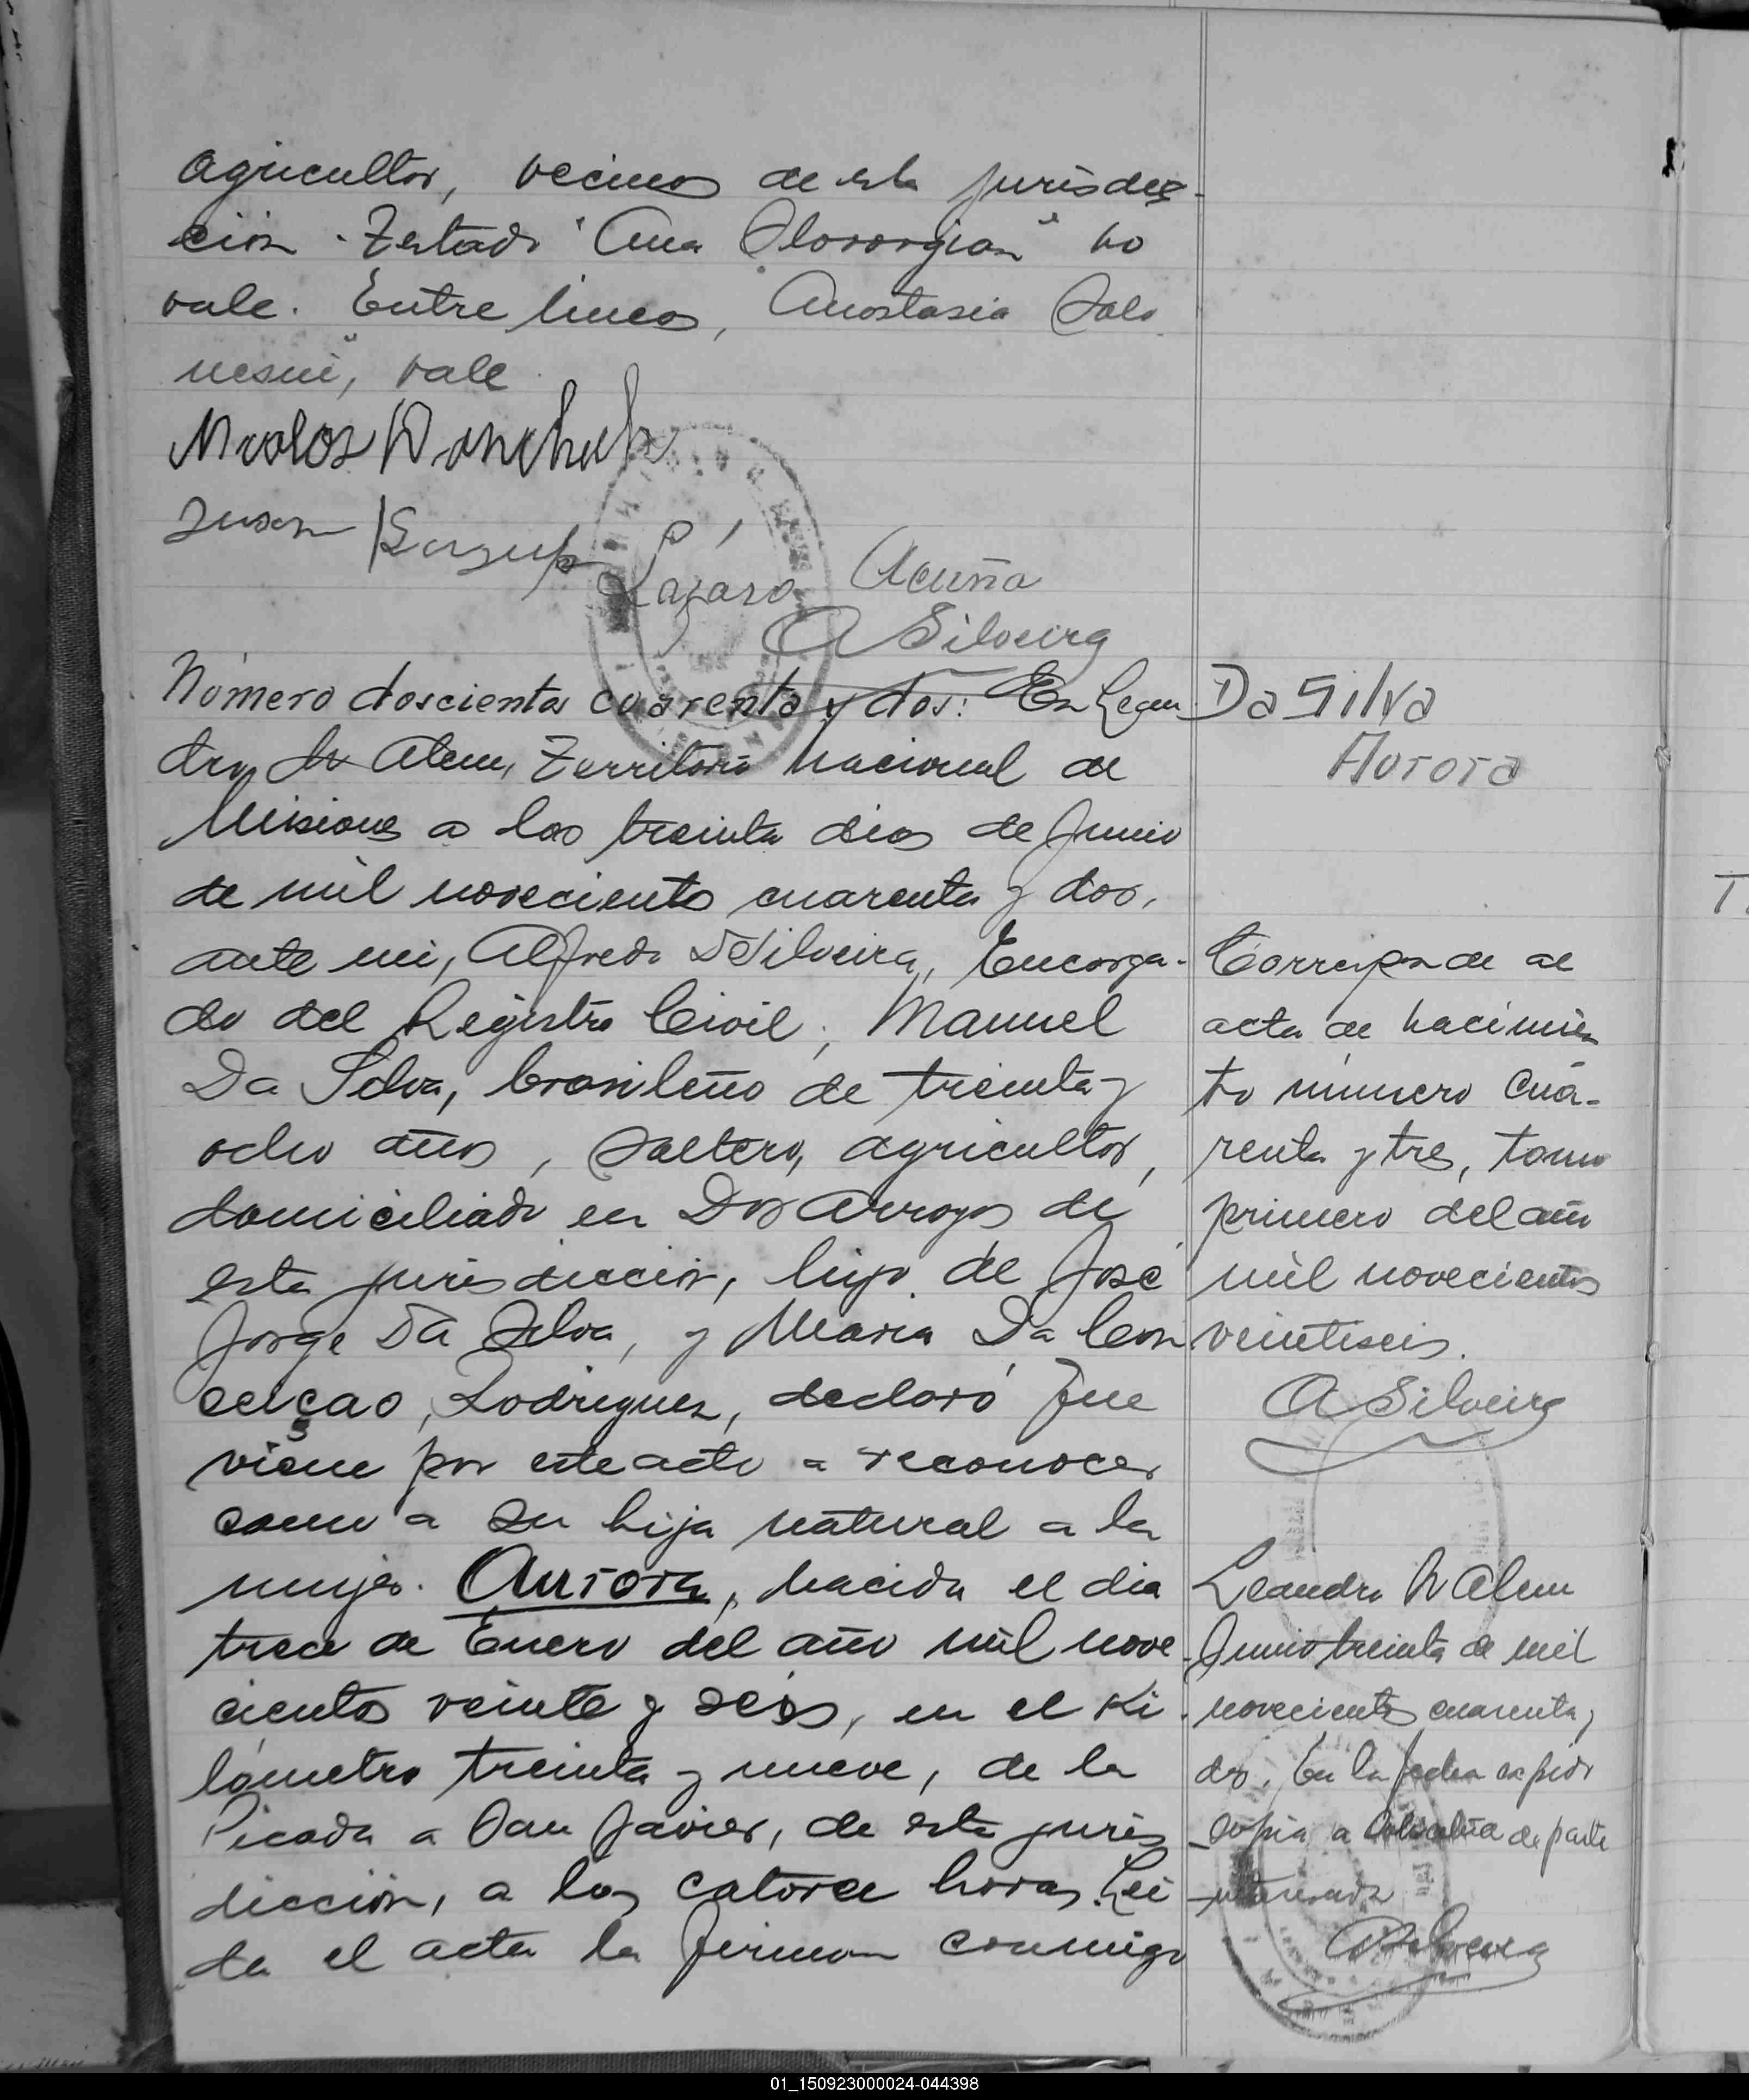 agricultor, vecinos de esta jurisdic-
ción. Testado "Ana" no
vale. Entre lineas, Anastasia
vale
Nicolas
Juan
Lázaro Acuña
A Silveira
Número doscientos cuarenta y dos: En Lean
dro N Alem, Territorio Nacional de
Misiones a los treinta dias de Junio
de mil novecientos cuarenta y dos,
ante mi, Alfredo D Silveira, Encarga-
do del Registro Civil, Manuel
Da Silva, brasileño de treinta y
ocho años, soltero, agricultor,
domiciliado en Dos Arroyos de
esta jurisdiccion, hijo de José
Jorge Da Silva, y Maria Da Con
ceiçao, Rodriguez, declaró que
viene por este acto a reconocer
como a su hija natural a la
mujer Aurora, nacida el dia
trece de Enero del año mil nove-
cientos veinte y seis, en el Ki-
lómetro treinta y nueve, de la
Picada a San Javier, de esta juris
dicción, a las catorce horas. Lei
da el acta la firman conmigo
Da Silva
Aurora
Corresponde al
acta de nacimien
to número cua-
renta y tres, tomo
primero del año
mil novecientos
veintiseis.
A Silveira
Leandro N Alem
Junio treinta de mil
novecientos cuarenta y
dos. En la fecha expido
copia a de parte
interesada
A Silveira
01_150923000024-044398